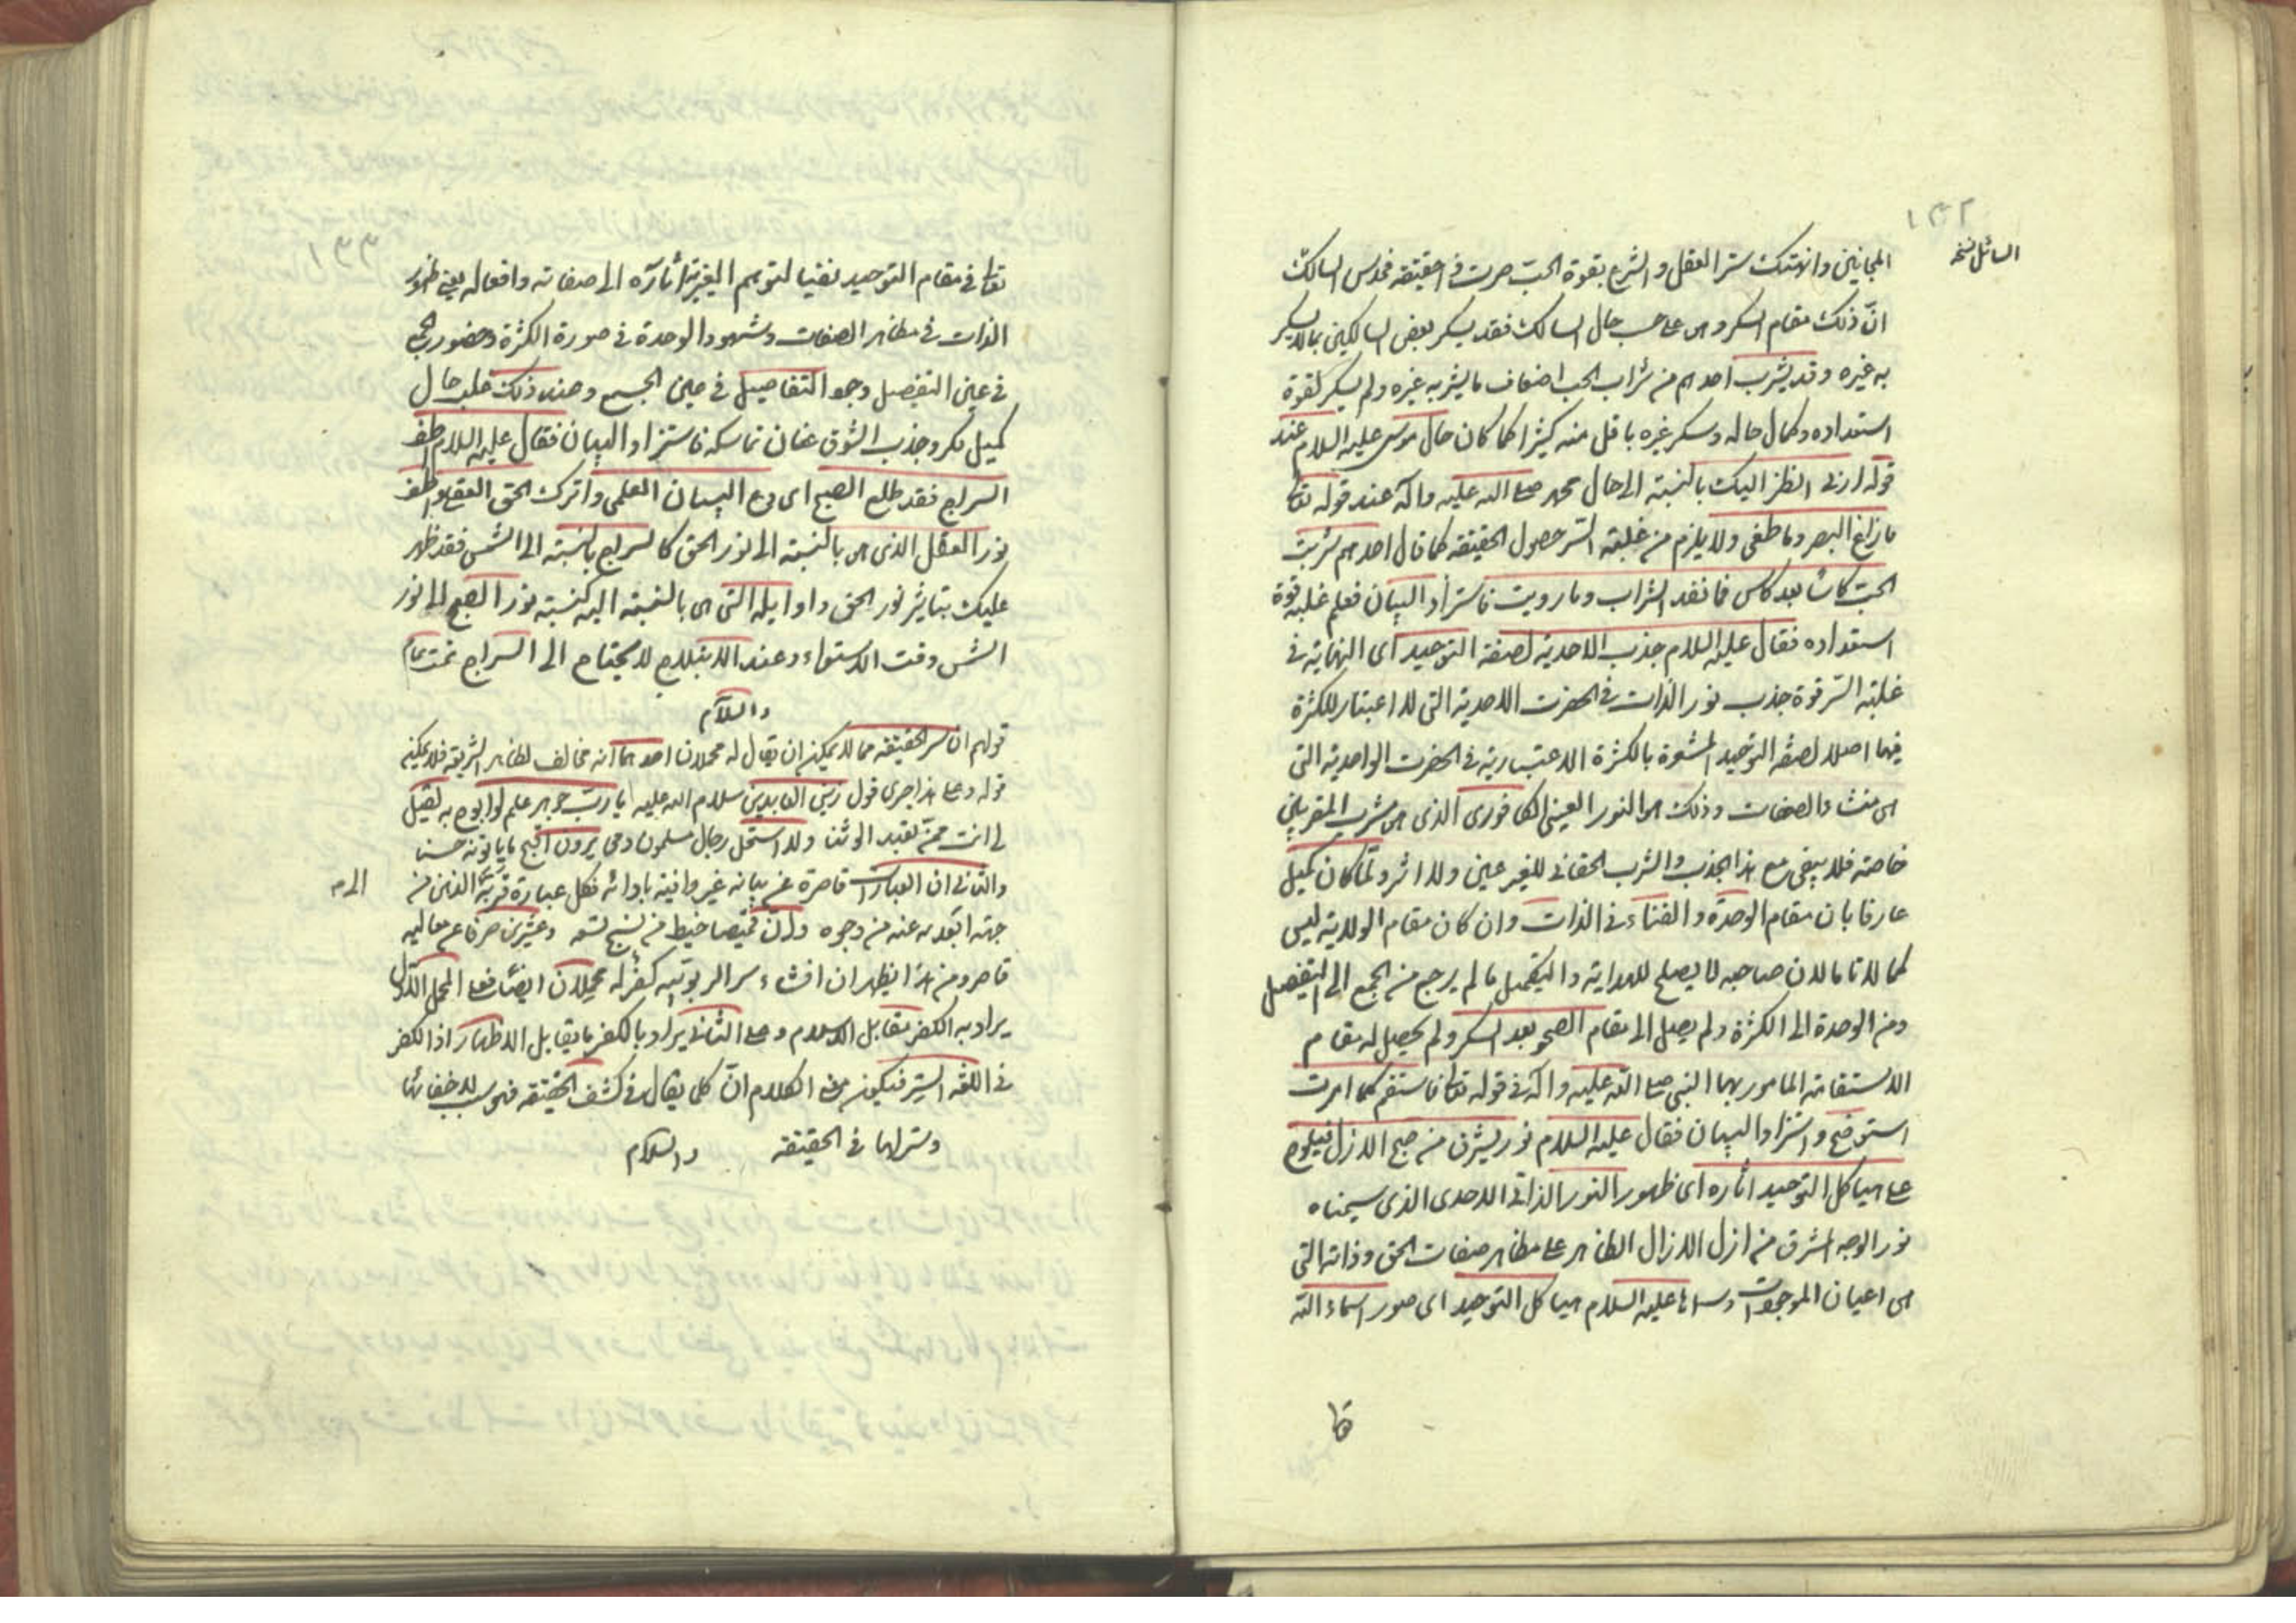 ١٣٢
السائل نسخه
المجانين وانهتك ستر العقل والشرع بقوة الحب صرت في الحقيقة فحدس السالك
انّ ذلك مقام السكر وهى على حسب حال السالك فقد يسكر بعض السالكين بما لا يسكر
به غيره وقد يشرب احدهم من شراب الحب اضعاف ما يشربه غيره ولم يسكر لقوة
استعداده وكمال حاله وسكر غيره باقل منه كثيرا كما كان حال موسى عليه السلام عند
قوله ارنى انظر اليك بالنسبة الى حال محمد صلى الله عليه وآله عند قوله تعا
ما زاغ البصر وما طغى ولا يلزم من غلبة السّر حصول الحقيقة كما قال احدهم شربت
الحب كاسًا بعد كاس فما نفد الشراب وما رويت فاستزاد البيان فعلم غلبة قوة
استعداده فقال عليه السلام جذب الاحدية لصفة التوحيد اى النهاية في
غلبة السّر قوة جذب نور الذات في الحضرت الاحدية التى لا اعتبار للكثرة
فيها اصلا لصفة التوحيد المشعرة بالكثرة الاعتبارية في الحضرت الواحدية التى
هى منشاء الصفات وذلك هو النور العينى الكافورى الذى هو مشرب المقربين
خاصة فلا يبقى مع هذا الجذب والشرب الحقانى للغير عين ولا اثر ولمّا كان كميل
عارفا بان مقام الوحدة والفناء في الذات وان كان مقام الولاية ليس
كمالا تاما لان صاحبه لا يصلح للهداية والتكميل ما لم يرجع من الجمع الى التفصيل
ومن الوحدة الى الكثرة ولم يصل الى مقام الصحو بعد السكر ولم يحصل له مقام
الاستقامة المامور بها النبى صلى الله عليه وآله في قوله تعا فاستقم كما امرت
استوضح واستزاد البيان فقال عليه السلام نور يشرق من صبح الازل فيلوح
على هياكل التوحيد اثاره اى ظهور النور الذاتى الاحدى الذى سميناه
نور الوجه المشرق من ازل الازال الظاهر على مظاهر صفات الحق وذاته التى
هى اعيان الموجودات وسماها عليه السلام هياكل التوحيد اى صور اسماء الله
تعا
١٣٣
تعا في مقام التوحيد نفيا لتوهم الغيرية اثاره الى صفاته وافعاله يعنى ظهور
الذات في مظاهر الصفات وشهود الوحدة في صورة الكثرة وحضور الجمع
في عين التفصيل ومحو التفاصيل في عين الجمع وعند ذلك غلب حال
كميل سكر وجذب الشوق عنان تماسكه فاستزاد البيان فقال عليه السلام اطف
السراج فقد طلع الصبح اى دع البيان العلمى واترك الحق العقلى واطف
نور العقل الذى هى بالنسبة الى نور الحق كالسراج بالنسبة الى الشمس فقد ظهر
عليك تباشير نور الحق واوايله التى هى بالنسبة اليه كنسبة نور الصبح الى نور
الشمس وقت الاستواء وعند الابتلاج لا يحتاج الى السراج تمت تمام
والسلام
قولهم ان سر الحقيقة مما لا يمكن ان يقال له محملان احدهما انه مخالف لظاهر الشريعة فلا يمكنه
قوله وعلى هذا جرى قول زين العابدين سلام الله عليه يا ربّ جوهر علم لو ابوح به لقيل
لى انت ممن يعبد الوثنا ولاستحل رجال مسلمون دمى يرون اقبح ما ياتونه حسنا
والثانى ان العبارات قاصرة عن بيانه غير وافية بادائه فكل عبارة قربته الى الذهن من
الى م
جهة ابعدته عنه من وجوه وانّ قميصا خيط من نسج تسعه وعشرين حرفا عن معاليه
قاصر ومن هذا يظهر ان افشاء سر الربوبيه كفر له محملان ايضا فعلى المحمل الاول
يراد به الكفر مقابل الاسلام وعلى الثانى يراد بالكفر ما يقابل الاظهار اذ الكفر
في اللغة الستر فيكون معنى الكلام انّ كل يقال في كشف الحقيقة فهو سبب لاخفائها
وستر لها في الحقيقة والسلام